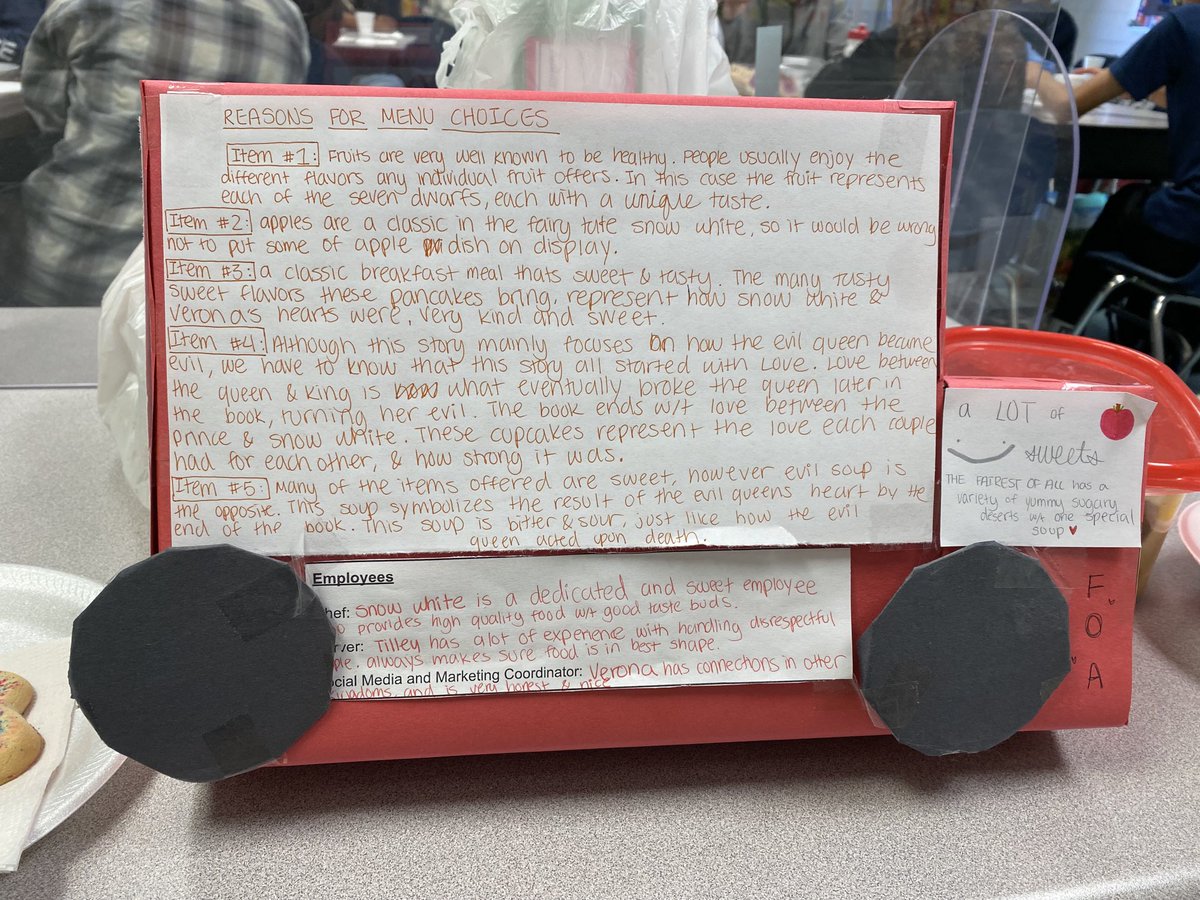 REASONS FOR MENU CHOICES
Item #1: Fruits are very well known to be healthy. People usually enjoy the
different flavors any individual fruit offers. In this case the fruit represents
each of the seven dwarfs, each with a unique taste.
Item #2: apples are a classic in the fairy tale snow white, so it would be wrong
not to put some of apple dish on display.
Item #3: a classic breakfast meal thats sweet & tasty. The many tasty
sweet flavors these pancakes bring, represent how snow white &
verona's hearts were, very kind and sweet.
Item #4: Although this story mainly focuses on how the evil queen became
evil, we have to know that this story all started with Love. Love between
the queen & king is what eventually broke the queen later in
the book, turning her evil. The book ends w/t love between the
prince & snow white. These cupcakes represent the love each couple
had for each other, & how strong it was.
Item #5: Many of the items offered are sweet, however evil soup is
the opposite. This soup symbolizes the result of the evil queens heart by the
end of the book. This soup is bitter & sour, just like how the evil
queen acted upon death.
a LOT of
sweets
THE FAIREST OF ALL has a
variety of yummy sugary
deserts w/t one special
soup ♥
Employees
hef: snow white is a dedicated and sweet employee
o provides high quality food w/t good taste buds.
rver: Tilley has a lot of experience with handling disrespectful
ple. always makes sure food is in best shape.
ocial Media and Marketing Coordinator: Verona has connections in other
ingdoms and is very honest & nice
F
O
A